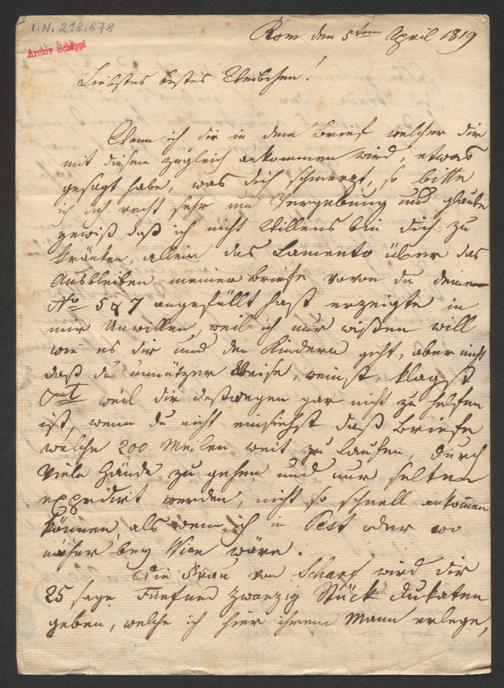 I.N. 218.878
Archiv Schöppl
Rom den 5ten April 1819
Liebstes bestes Weibchen!
Wenn ich dir in dem Brief welcher dir
mit diesem zugleich ankommen wird, etwas
gesagt habe, was dich schmerzt, so bitte
ich dich recht sehr um Vergebung und glaube
gewiß daß ich nicht Willens bin dich zu
kränken, allein das Lamento über das
Ausbleiben meiner Briefe wovon du deine
No 5 & 7 angefüllt hast erzeugte in
mir Unwillen, weil ich nur wißen will
wie es dir und den Kindern geht, aber nicht
daß du unnützer Weise, weinst, klagst
weil dir deswegen gar nicht zu helfen
ist, wenn du nicht einsiehst daß Briefe
welche 200 Meilen weit zu laufen, durch
viele Hände zu gehen und nur selten
expedirt werden, nicht so schnell ankommen
können, als wenn ich in Pest oder wo
näher bey Wien wäre.
Die Frau von Scharf wird dir
25 sage Fünf und zwanzig Stück Dukaten
geben, welche ich hier ihrem Mann erlege,